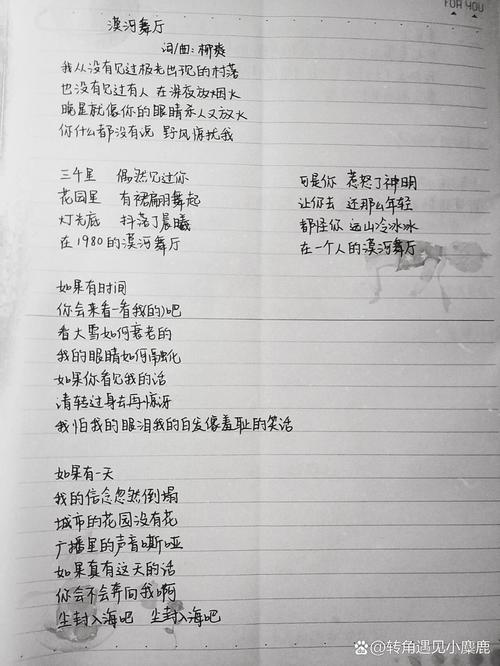 FOR YOU
漠河舞厅
词/曲:柳爽
我从没有见过极光出现的村落
也没有见过有人 在深夜放烟火
晚星就像你的眼睛杀人又放火
你什么都没有说 野风惊扰我
三千里 偶然见过你
花园里 有裙翩翩舞起
灯光底 抖落了晨曦
在1980的漠河舞厅
可是你 惹怒了神明
让你去 还那么年轻
都怪你 远山冷冰冰
在一个人的漠河舞厅
如果有时间
你会来看一看我的吧
看大雪如何衰老的
我的眼睛如何融化
如果你看见我的话
请转过身去再惊讶
我怕我的眼泪我的白发像羞耻的笑话
如果有一天
我的信念忽然倒塌
城市的花园没有花
广播里的声音嘶哑
如果真有这天的话
你会不会奔向我啊
尘封入海吧 尘封入海吧
转角遇见小麋鹿